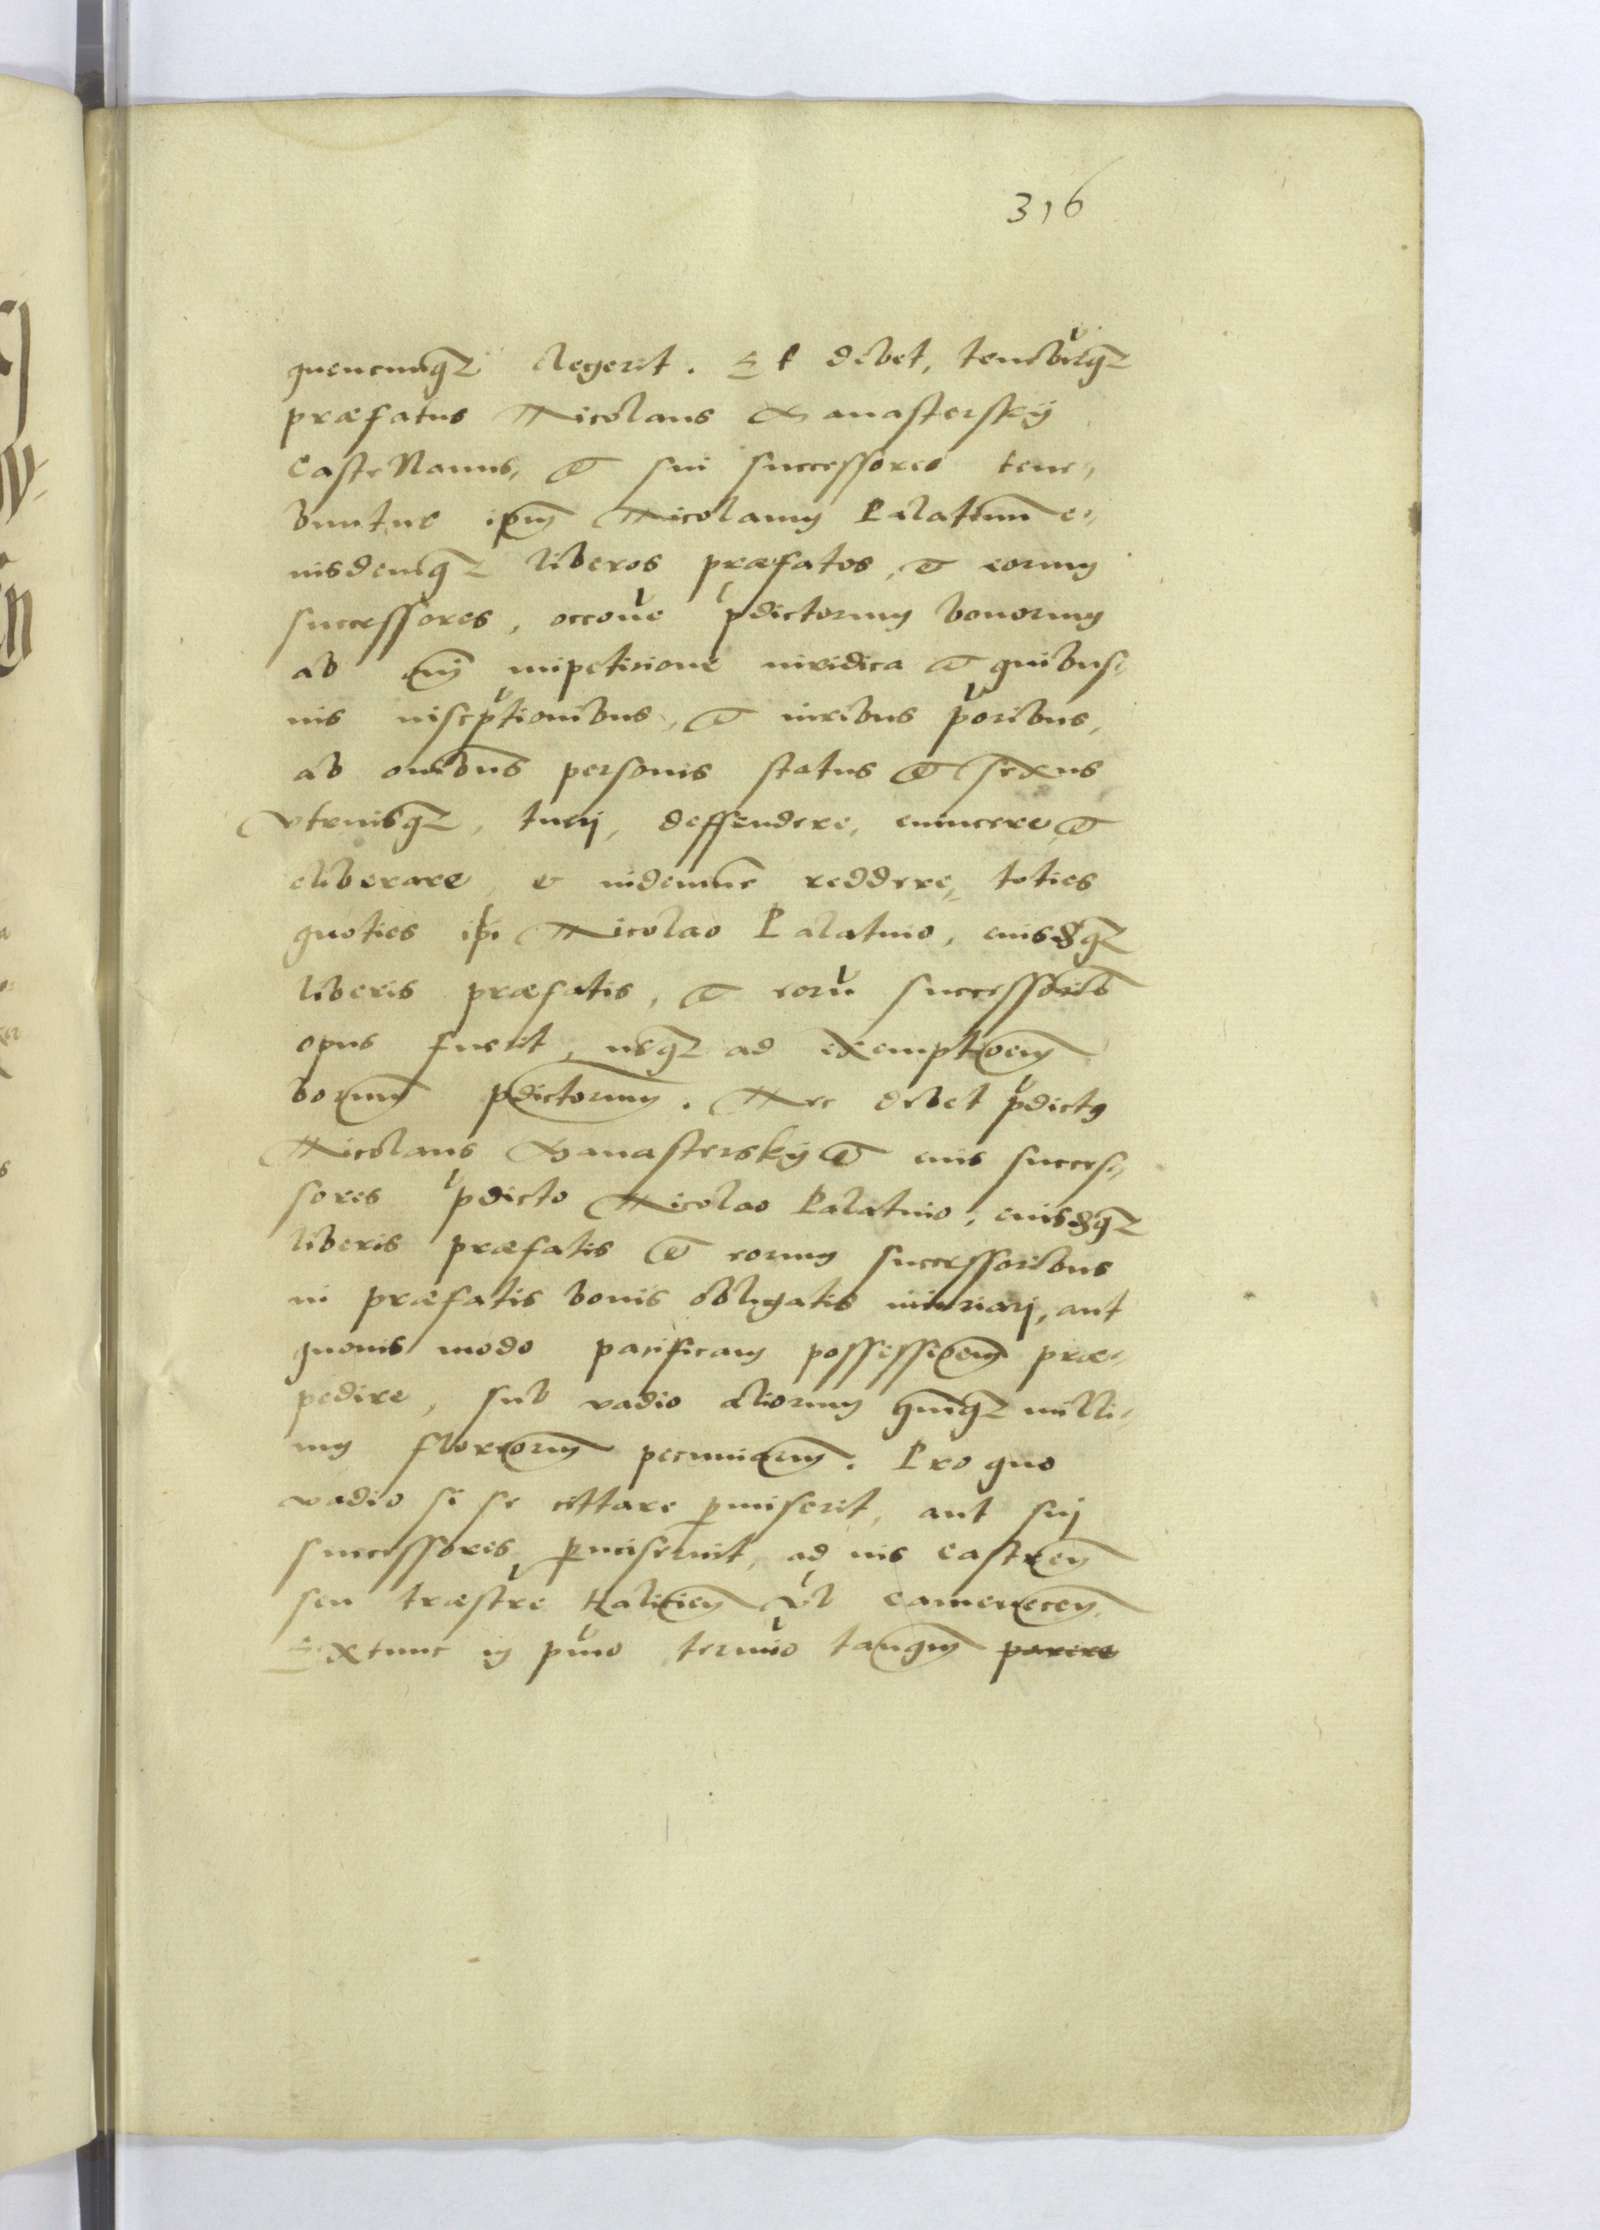 316
quencunq3 elegerit. Et debet, tenebit'q3
præfatus Nicolaus Sanasterskÿ
Castellanus, et sui successores tene,
buntur ipm̄ Nicolaum Palatinum e-
iusdemq3 liberos præfatos, et eorum
successores, occōne p̄dictorum bonorum
ab om̄i impetitione iuridica et quibusuis
uis inscp̄tionibus, et iuribus p̄oribus,
ab om̄ibus personis status et sexus
vtriusq3, tueri, deffendere, euincere, et
eliberare, et indemne reddere, toties
quoties ip̄i Nicolao Palatino, eiusdq3
liberis præfatis, et eorū successorib
opus fuerit, usq3 ad exemptōem
bonorum p̄dictorum. Nec debet p̄dictus
Nicolaus Sanasterskÿ et eius succes-
sores p̄dicto Nicolao Palatino, eiusdq3
liberis præfatis et eorum successoribus
in præfatis bonis obligatis iniuriari, aut
quouis modo pacificam possessionem præ-
pedire, sub vadio aliorum quinq3 milli-
um florenorum pecuniarum. Pro quo
vadio si se cittare p̄miserit, aut sui
successores p̄miserint, ad ius Castren
seu træstre Halicien vl Camenecen.
Extunc in p̄mo termīo tanqm̄ parere